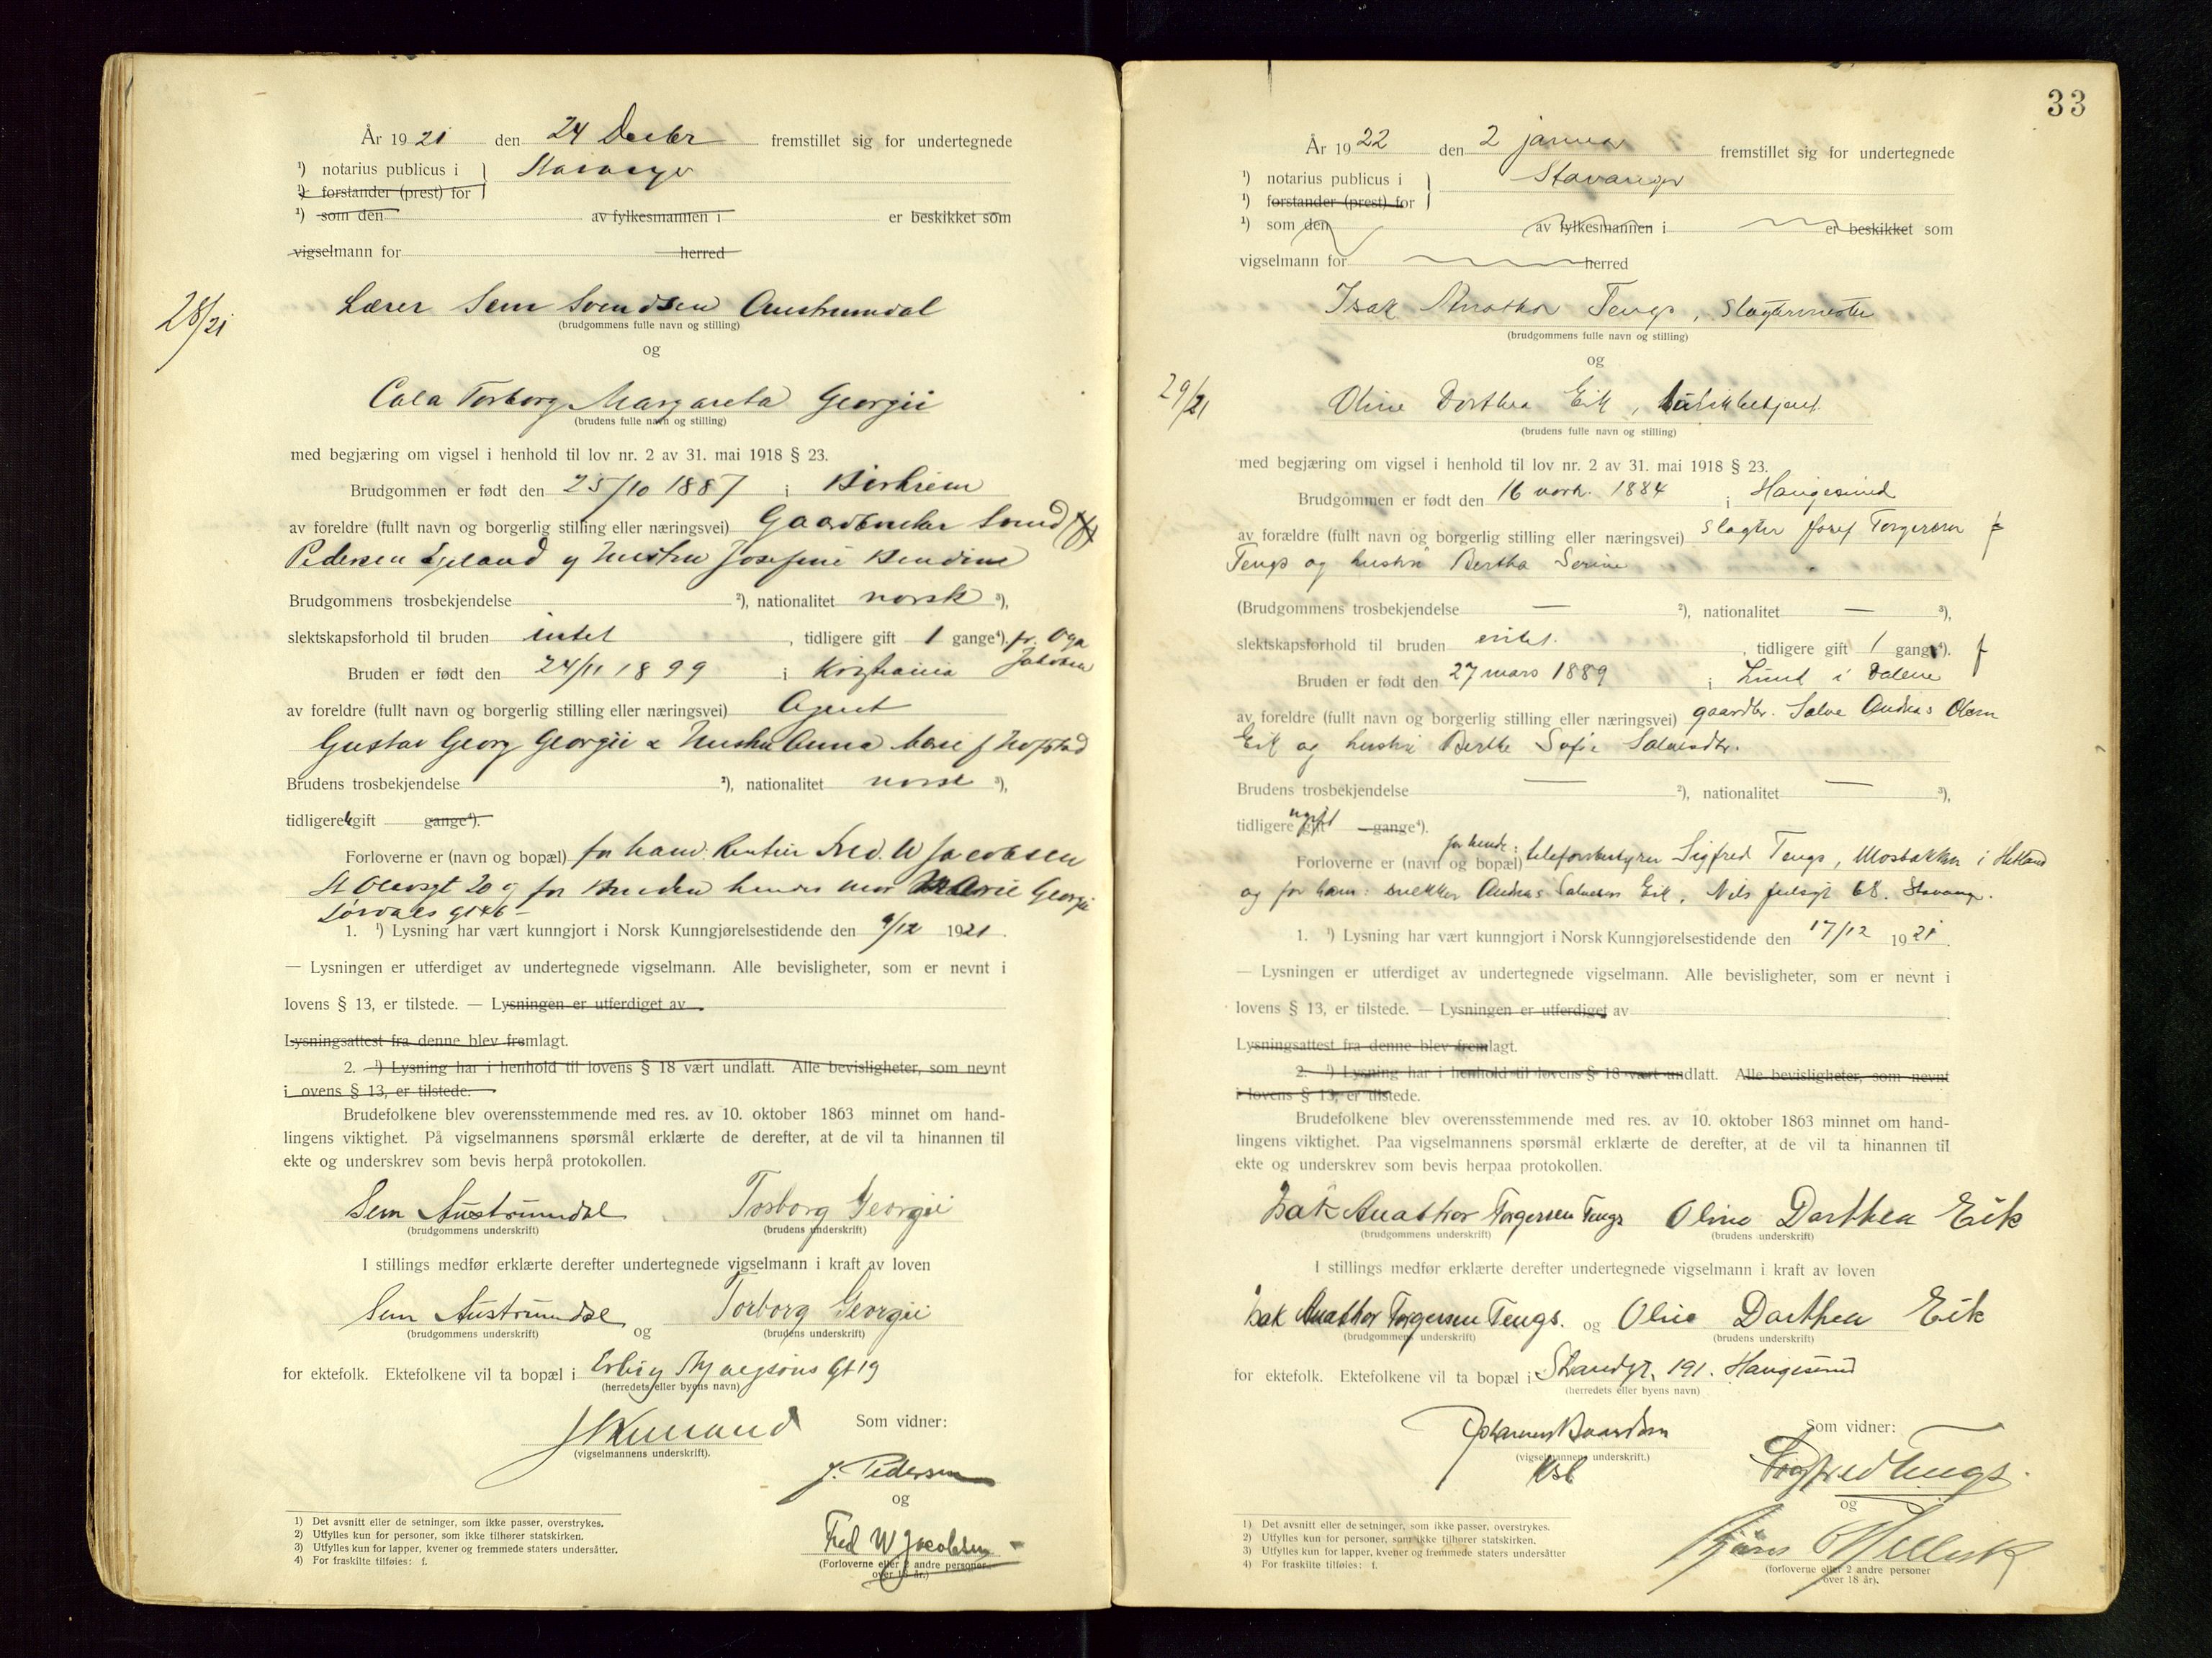 År 1921 den 24 Decbr fremstillet sig for undertegnede
¹) notarius publicus i } Stavanger
¹) forstander (prest) for
¹) som den av fylkesmannen i er beskikket som
vigselmann for herred
28/21
Lærer Sem Svendsen Austrumdal
(brudgommens fulle navn og stilling)
og
Cala Torborg Margareta Georgii
(brudens fulle navn og stilling)
med begjæring om vigsel i henhold til lov nr. 2 av 31. mai 1918 § 23.
Brudgommen er født den 25/10 1887 i Birkrem
av foreldre (fullt navn og borgerlig stilling eller næringsvei) Gaardbruker Svend
Pedersen Espeland og Hustru Josefine Bendine
Brudgommens trosbekjendelse ²), nationalitet norsk ³),
slektskapsforhold til bruden intet , tidligere gift 1 gange⁴). fr. Olga
Jakobsen
Bruden er født den 24/11 1899 i Kristiania
av foreldre (fullt navn og borgerlig stilling eller næringsvei) Agent
Gustav Georg Georgii & Hustru Anna Marie f Hofstad
Brudens trosbekjendelse ²), nationalitet norsk ³),
tidligere gift gange⁴).
Forloverne er (navn og bopæl) for ham: Rentier Fred. W Jacobsen
St Olavsgt 20 og for Bruden hendes mor Marie Georgii
gt 46 —
1. ¹) Lysning har vært kunngjort i Norsk Kunngjørelsestidende den 9/12 1921.
— Lysningen er utferdiget av undertegnede vigselmann. Alle bevisligheter, som er nevnt i
lovens § 13, er tilstede. — Lysningen er utferdiget av
Lysningsattest fra denne blev fremlagt.
2. ¹) Lysning har i henhold til lovens § 18 vært undlatt. Alle bevisligheter, som nevnt
i ovens § 13, er tilstede.
Brudefolkene blev overensstemmende med res. av 10. oktober 1863 minnet om hand-
lingens viktighet. På vigselmannens spørsmål erklærte de derefter, at de vil ta hinannen til
ekte og underskrev som bevis herpå protokollen.
Sem Austrumdal Torborg Georgii
(brudgommens underskrift) (brudens underskrift)
I stillings medfør erklærte derefter undertegnede vigselmann i kraft av loven
Sem Austrumdal og Torborg Georgii
(brudgommens underskrift) (brudens underskrift)
for ektefolk. Ektefolkene vil ta bopæl i Gt 19
(herredets eller byens navn)
(vigselmannens underskrift).
Som vidner:
J. Pedersen
og
Fred W Jacobsen
(Forloverne eller 2 andre personer
over 18 år.)
1) Det avsnitt eller de setninger, som ikke passer, overstrykes.
2) Utfylles kun for personer, som ikke tilhører statskirken.
3) Utfylles kun for lapper, kvener og fremmede staters undersåtter.
4) For fraskilte tilføies: f.
33
År 1922 den 2 januar fremstillet sig for undertegnede
¹) notarius publicus i } Stavanger
¹) forstander (prest) for
¹) som den av fylkesmannen i er beskikket som
vigselmann for herred
Isak Anathor Tengs, Slagtermester
(brudgommens fulle navn og stilling)
og
29/21
Oline Dorthea Eik, butikbetjent
(brudens fulle navn og stilling)
med begjæring om vigsel i henhold til lov nr. 2 av 31. mai 1918 § 23.
Brudgommen er født den 16 novbr. 1884 i Haugesund
av forældre (fullt navn og borgerlig stilling eller næringsvei) slagter Josef Torgersen
Tengs og hustru Bertha Serine
(Brudgommens trosbekjendelse — ²), nationalitet — ³),
slektskapsforhold til bruden intet. , tidligere gift 1 gang⁴). f
Bruden er født den 27 mars 1889 i Lund i Dalene
av foreldre (fullt navn og borgerlig stilling eller næringsvei) gaardbr. Salve Andreas Olsen
Eik og hustru Berthe Sofie Salvesdtr.
Brudens trosbekjendelse — ²), nationalitet — ³),
tidligere gift ugift gange⁴).
Forloverne er (navn og bopæl) for hende: telefonbestyrer Sigfred Tengs, Mosbakken i Hetland
og for ham: snekker Andreas Salvesen Eik, Nils Juelsgt 68. Stavanger.
1. ¹) Lysning har vært kunngjort i Norsk Kunngjørelsestidende den 17/12 1921.
— Lysningen er utferdiget av undertegnede vigselmann. Alle bevisligheter, som er nevnt i
lovens § 13, er tilstede. — Lysningen er utferdiget av
Lysningsattest fra denne blev fremlagt.
2. ¹) Lysning har i henhold til lovens § 18 vært undlatt. Alle bevisligheter, som nevnt
i lovens § 13, er tilstede.
Brudefolkene blev overensstemmende med res. av 10. oktober 1863 minnet om hand-
lingens viktighet. Paa vigselmannens spørsmål erklærte de derefter, at de vil ta hinannen til
ekte og underskrev som bevis herpaa protokollen.
Isak Anathor Torgersen Tengs Oline Dorthea Eik
(brudgommens underskrift) (brudens underskrift)
I stillings medfør erklærte derefter undertegnede vigselmann i kraft av loven
Isak Anathor Torgersen Tengs. og Oline Dorthea Eik
(brudgommens underskrift) (brudens underskrift)
for ektefolk. Ektefolkene vil ta bopæl i Strandgt. 191. Haugesund
(herredets eller byens navn)
(vigselmannens underskrift.)
Som vidner:
Sigfred Tengs.
og
(forloverne eller 2 andre personer
over 18 år).
1) Det avsnitt eller de setninger, som ikke passer, overstrykes.
2) Utfylles kun for personer, som ikke tilhører statskirken.
3) Utfylles kun for lapper, kvener og fremmede staters undersåtter
4) For fraskilte tilføies: f.